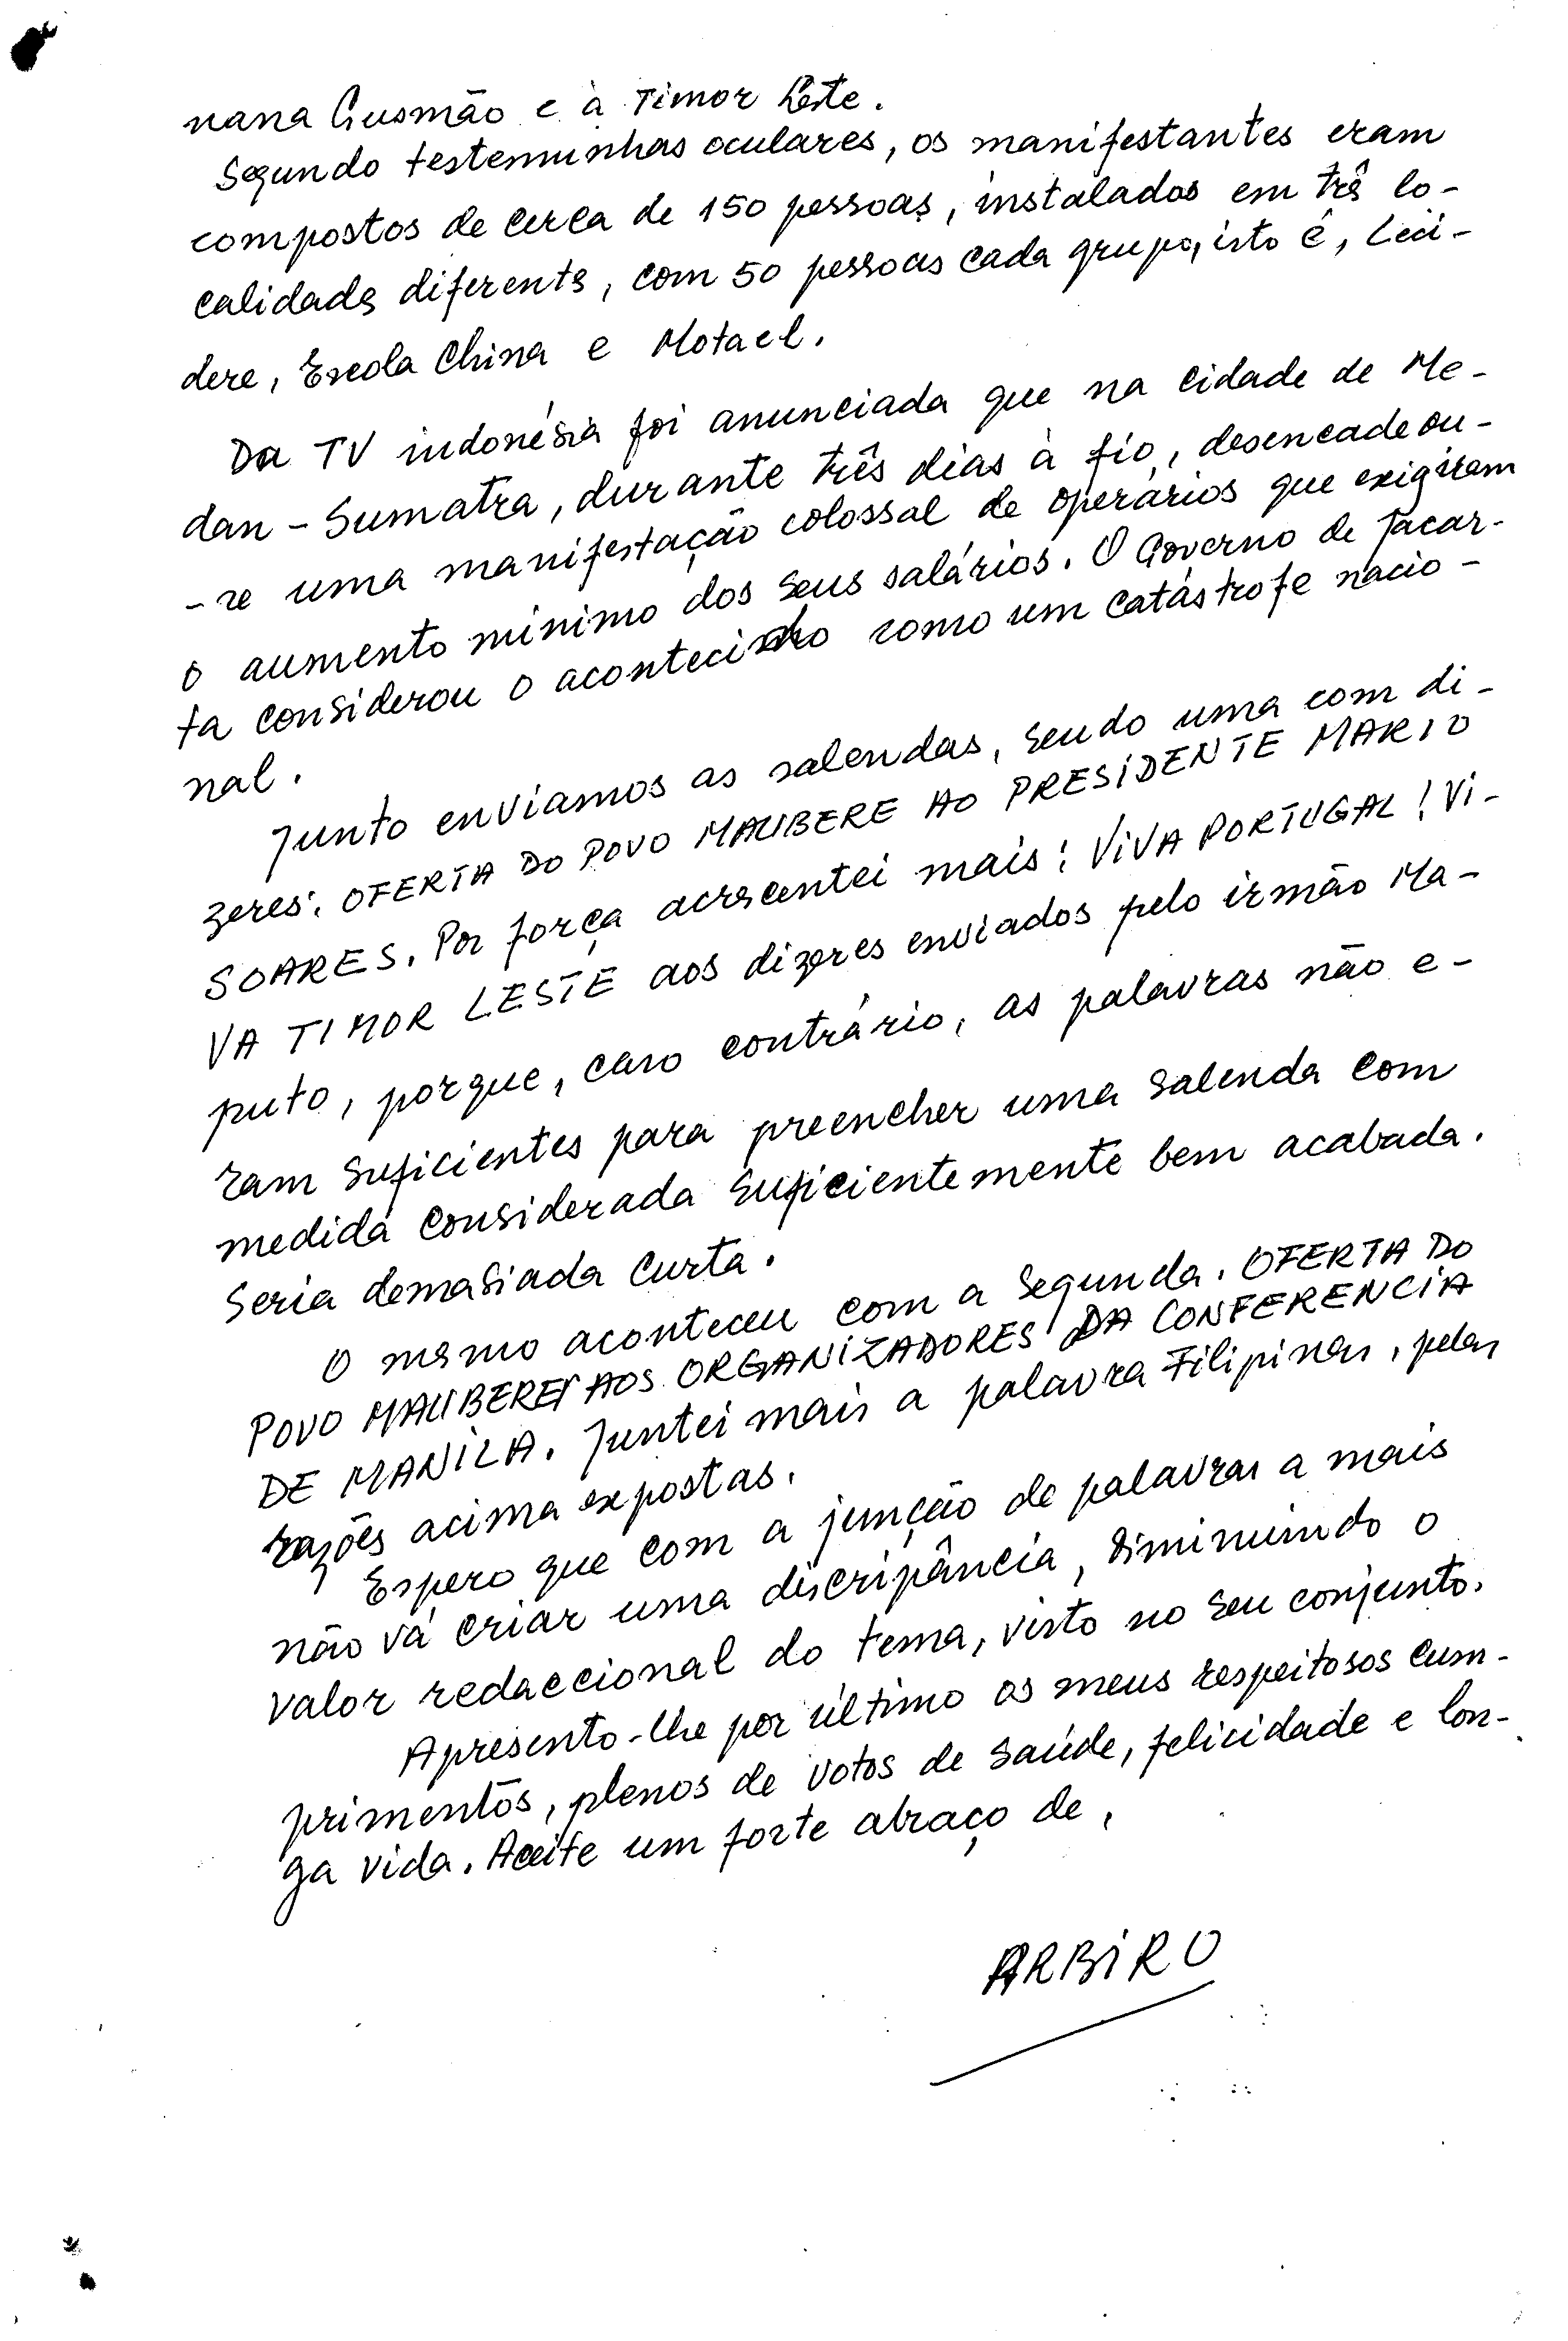 nana Gusmão e à Timor Leste.
Segundo testemunhas oculares, os manifestantes eram
compostos de cerca de 150 pessoas, instalados em três lo-
calidades diferentes, com 50 pessoas cada grupo, isto é, Leci-
dere, Escola China e Motael.
Da TV indonésia foi anunciada que na cidade de Me-
dan - Sumatra, durante três dias à fio, desencadeou-
-se uma manifestação colossal de operários que exigiram
o aumento mínimo dos seus salários. O Governo de Jacar-
ta considerou o acontecido como um catástrofe nacio-
nal.
Junto enviamos as salendas, sendo uma com di-
zeres: OFERTA DO POVO MAUBERE AO PRESIDENTE MARIO
SOARES. Por força acrescentei mais: VIVA PORTUGAL! VI-
VA TIMOR LESTE aos dizeres enviados pelo irmão Ma-
puto, porque, caso contrário, as palavras não e-
ram suficientes para preencher uma salenda com
medida considerada suficientemente bem acabada.
Seria demasiada curta.
O mesmo aconteceu com a segunda. OFERTA DO
POVO MAUBERE AOS ORGANIZADORES DA CONFERENCIA
DE MANILA. Juntei mais a palavra Filipinas, pelas
razões acima expostas.
Espero que com a junção de palavras a mais
não vá criar uma discripância, diminuindo o
valor redaccional do tema, visto no seu conjunto.
Apresento-lhe por último os meus respeitosos cum-
primentos, plenos de votos de saúde, felicidade e lon-
ga vida. Aceite um forte abraço de,
ARBIRO